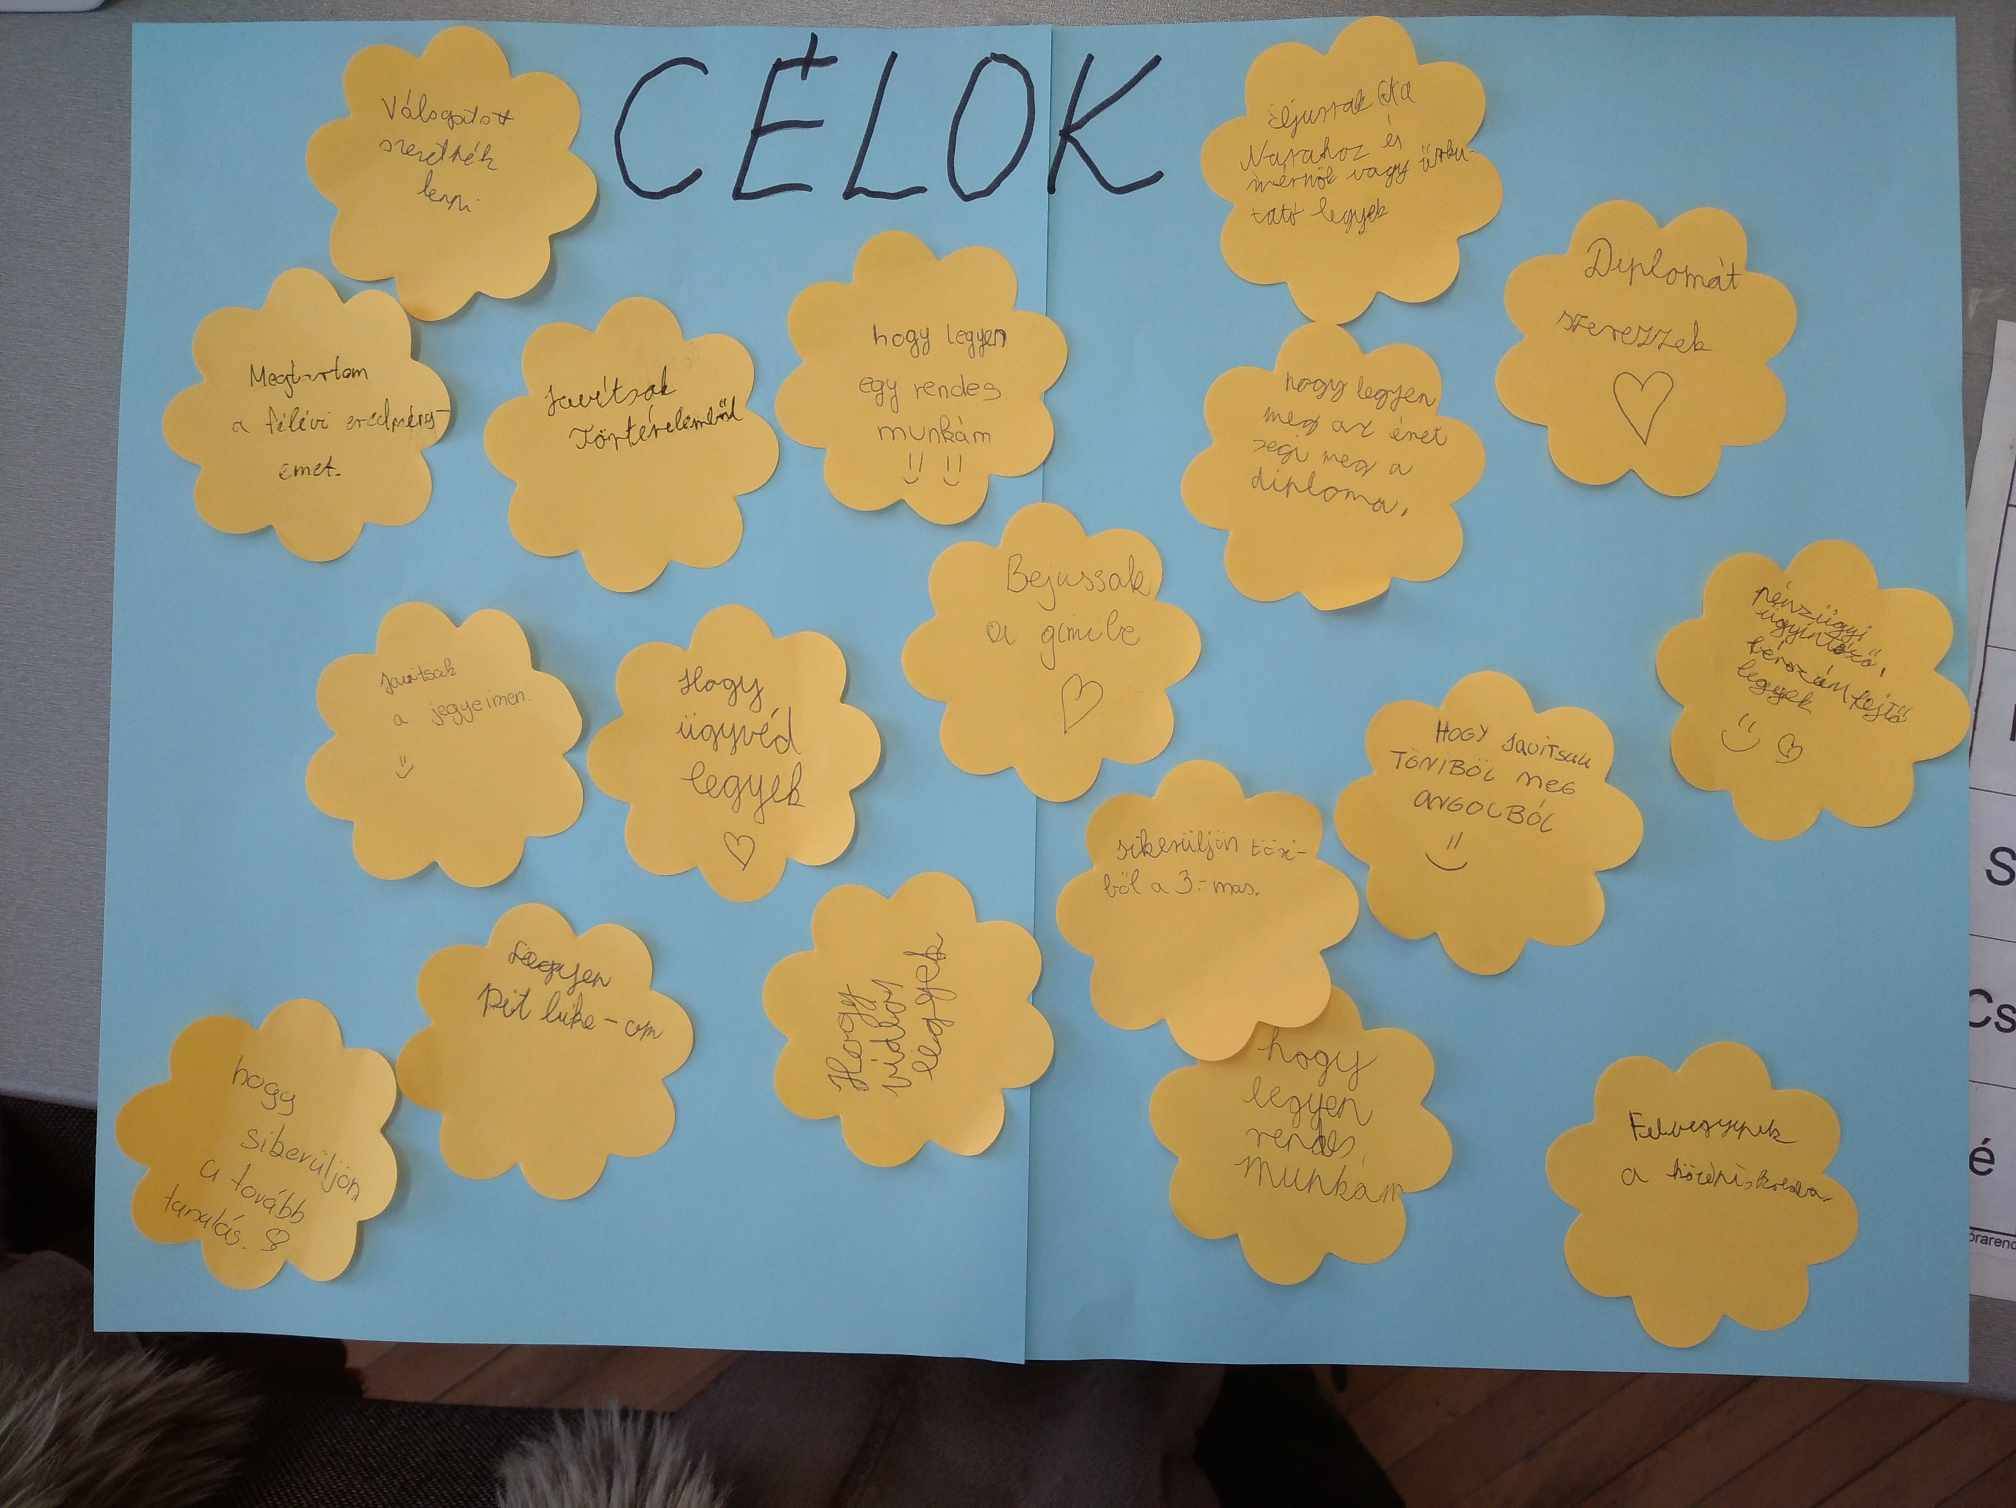 CÉLOK
Válogatott
szeretnék
lenni
Eljussak
Nasahoz és
mérnök vagy űrku-
tató legyek
Diplomát
szerezzek
Megtartom
a félévi eredmény-
emet.
Javítsak
Történelemből
hogy legyen
egy rendes
munkám
hogy legyen
meg az éret
segi meg a
diploma.
Bejussak
a gimibe
pénzügyi
ügyintéző,
bérszámfejtő
legyek
Javitsak
a jegyeimen.
Hogy
ügyvéd
legyek
HOGY JAVITSAK
TÖRIBŐL MEG
ANGOLBÓL
sikerüljön töri-
ből a 3.-mas.
Legyen
Pit bike-om
Hogy
vidboy
leggyek
hogy
sikerüljön
a tovább
tanulás.
hogy
legyen
rendes
munkám
Felvegyenek
a középiskolába
S
Cs
é
órarend